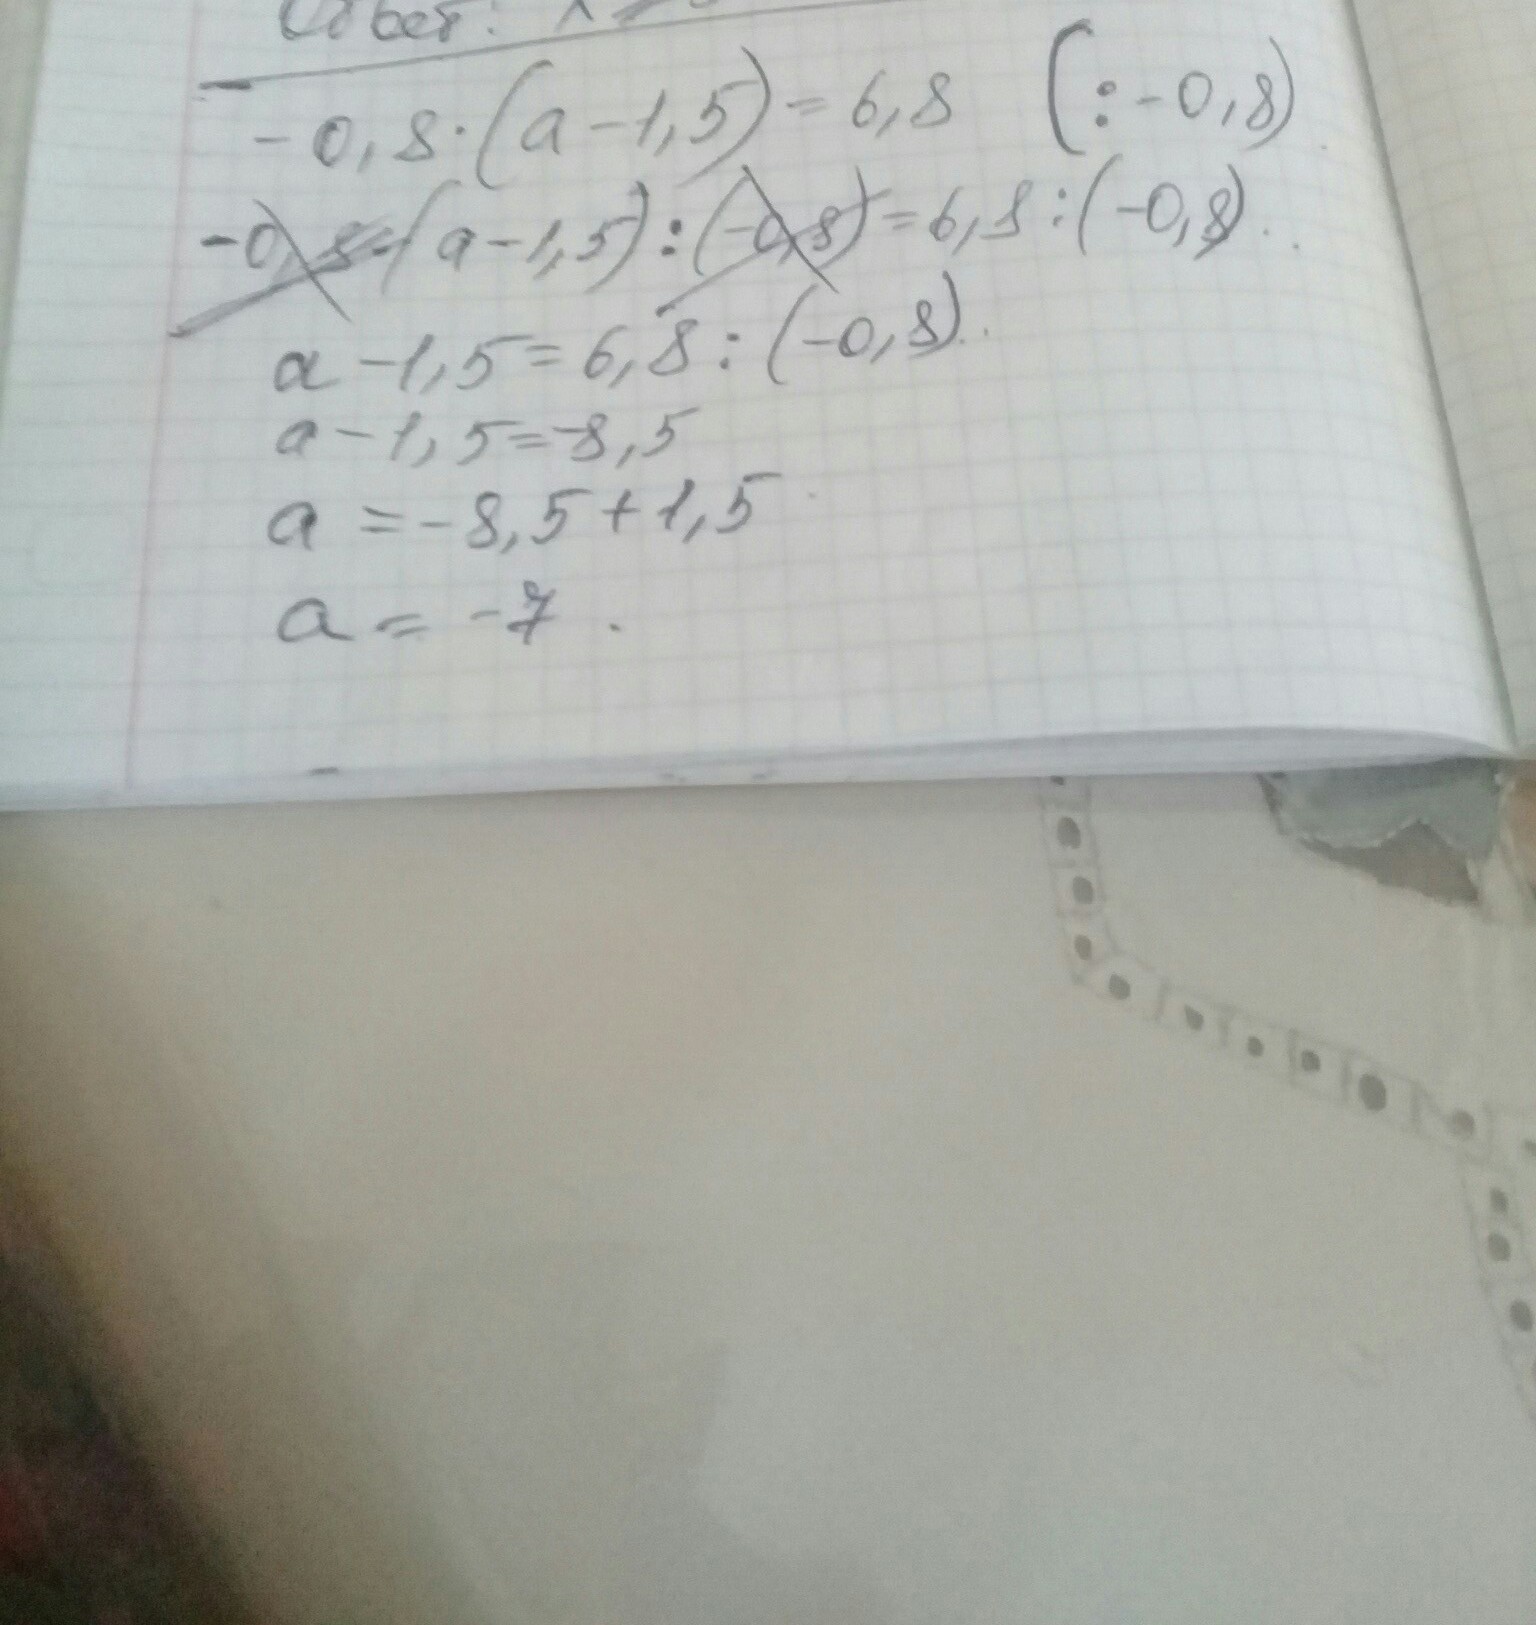 Ответ:
-0,8·(a-1,5)=6,8 (:-0,8)
-0,8·(a-1,5):(-0,8)=6,8:(-0,8).
a-1,5=6,8:(-0,8).
a-1,5=-8,5
a=-8,5+1,5
a=-7.